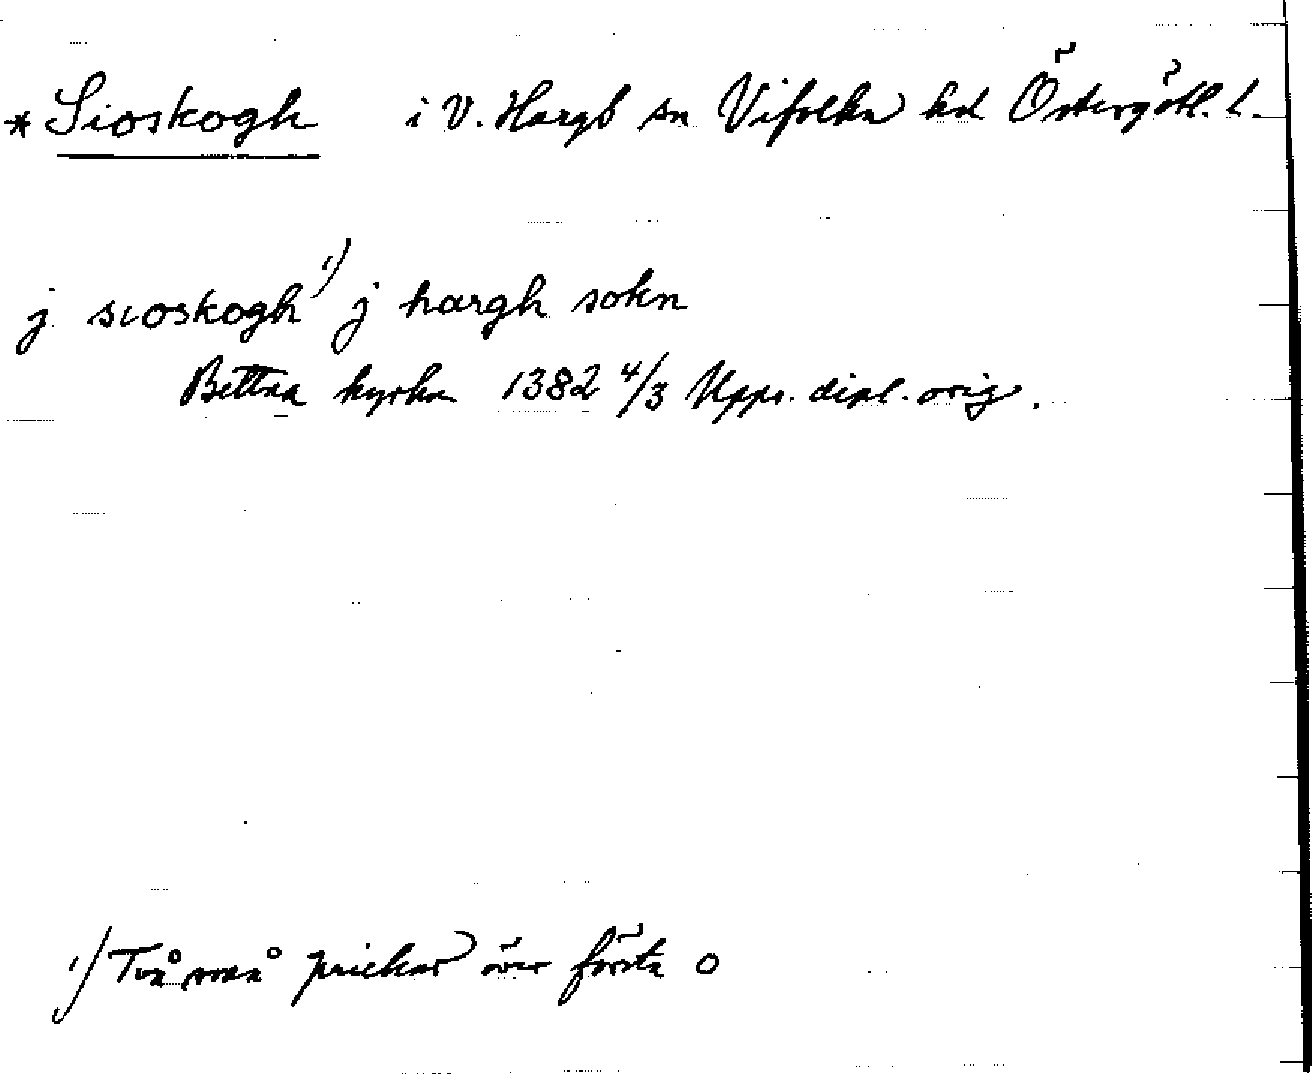 * Sioskogh i V. Hargs sn Vifolka hd Östergötl. l.
j sioskogh 1) j hargh sokn
Bettna kyrka 1382 4/3 Upps. dipl. orig.
1) Två små prickar över första o